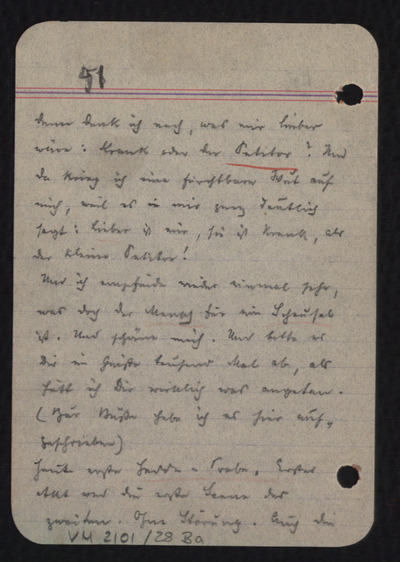 51
denn denk ich nach, was mir lieber
wäre: krank oder der Petitor? Und
da krieg ich eine furchtbare Wut auf
mich, weil es in mir ganz deutlich
sagt: lieber is mir, sie is krank, als
der kleine Petitor!
Und ich empfinde wieder einmal sehr,
was doch der Mensch für ein Scheusal
ist. Und schäme mich. Und bitte es
Dir in Geiste tausend Mal ab, als
hätt ich Dir wirklich was angetan.
(Zur Buße habe ich es hier auf-
geschrieben)
Heute erste Hedda-Probe. Erster
Akt und die erste Scene des
zweiten. Ohne Störung. Auch die
VM 2101/28 Ba